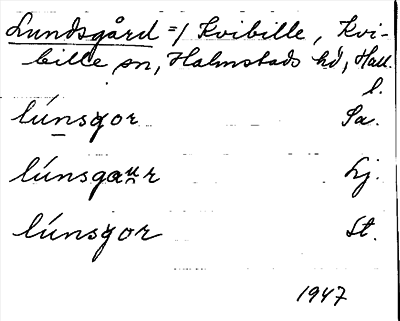 Lundsgård =/ Kvibille, Kvi-
bille sn, Halmstads hd, Hall.
l.
lúnsgor Sa.
lúnsgaur Lj.
lúnsgor St.
1947